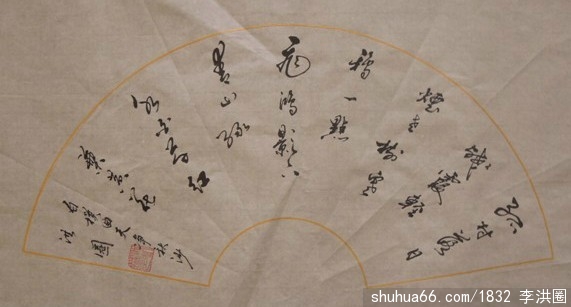 孤村落日
残霞轻
烟老树寒
鸦一點
飛鴻影下
青山綠
水白草红
葉黄花
白樸曲天净沙
洪圈
shuhua66.com/1832 李洪圈